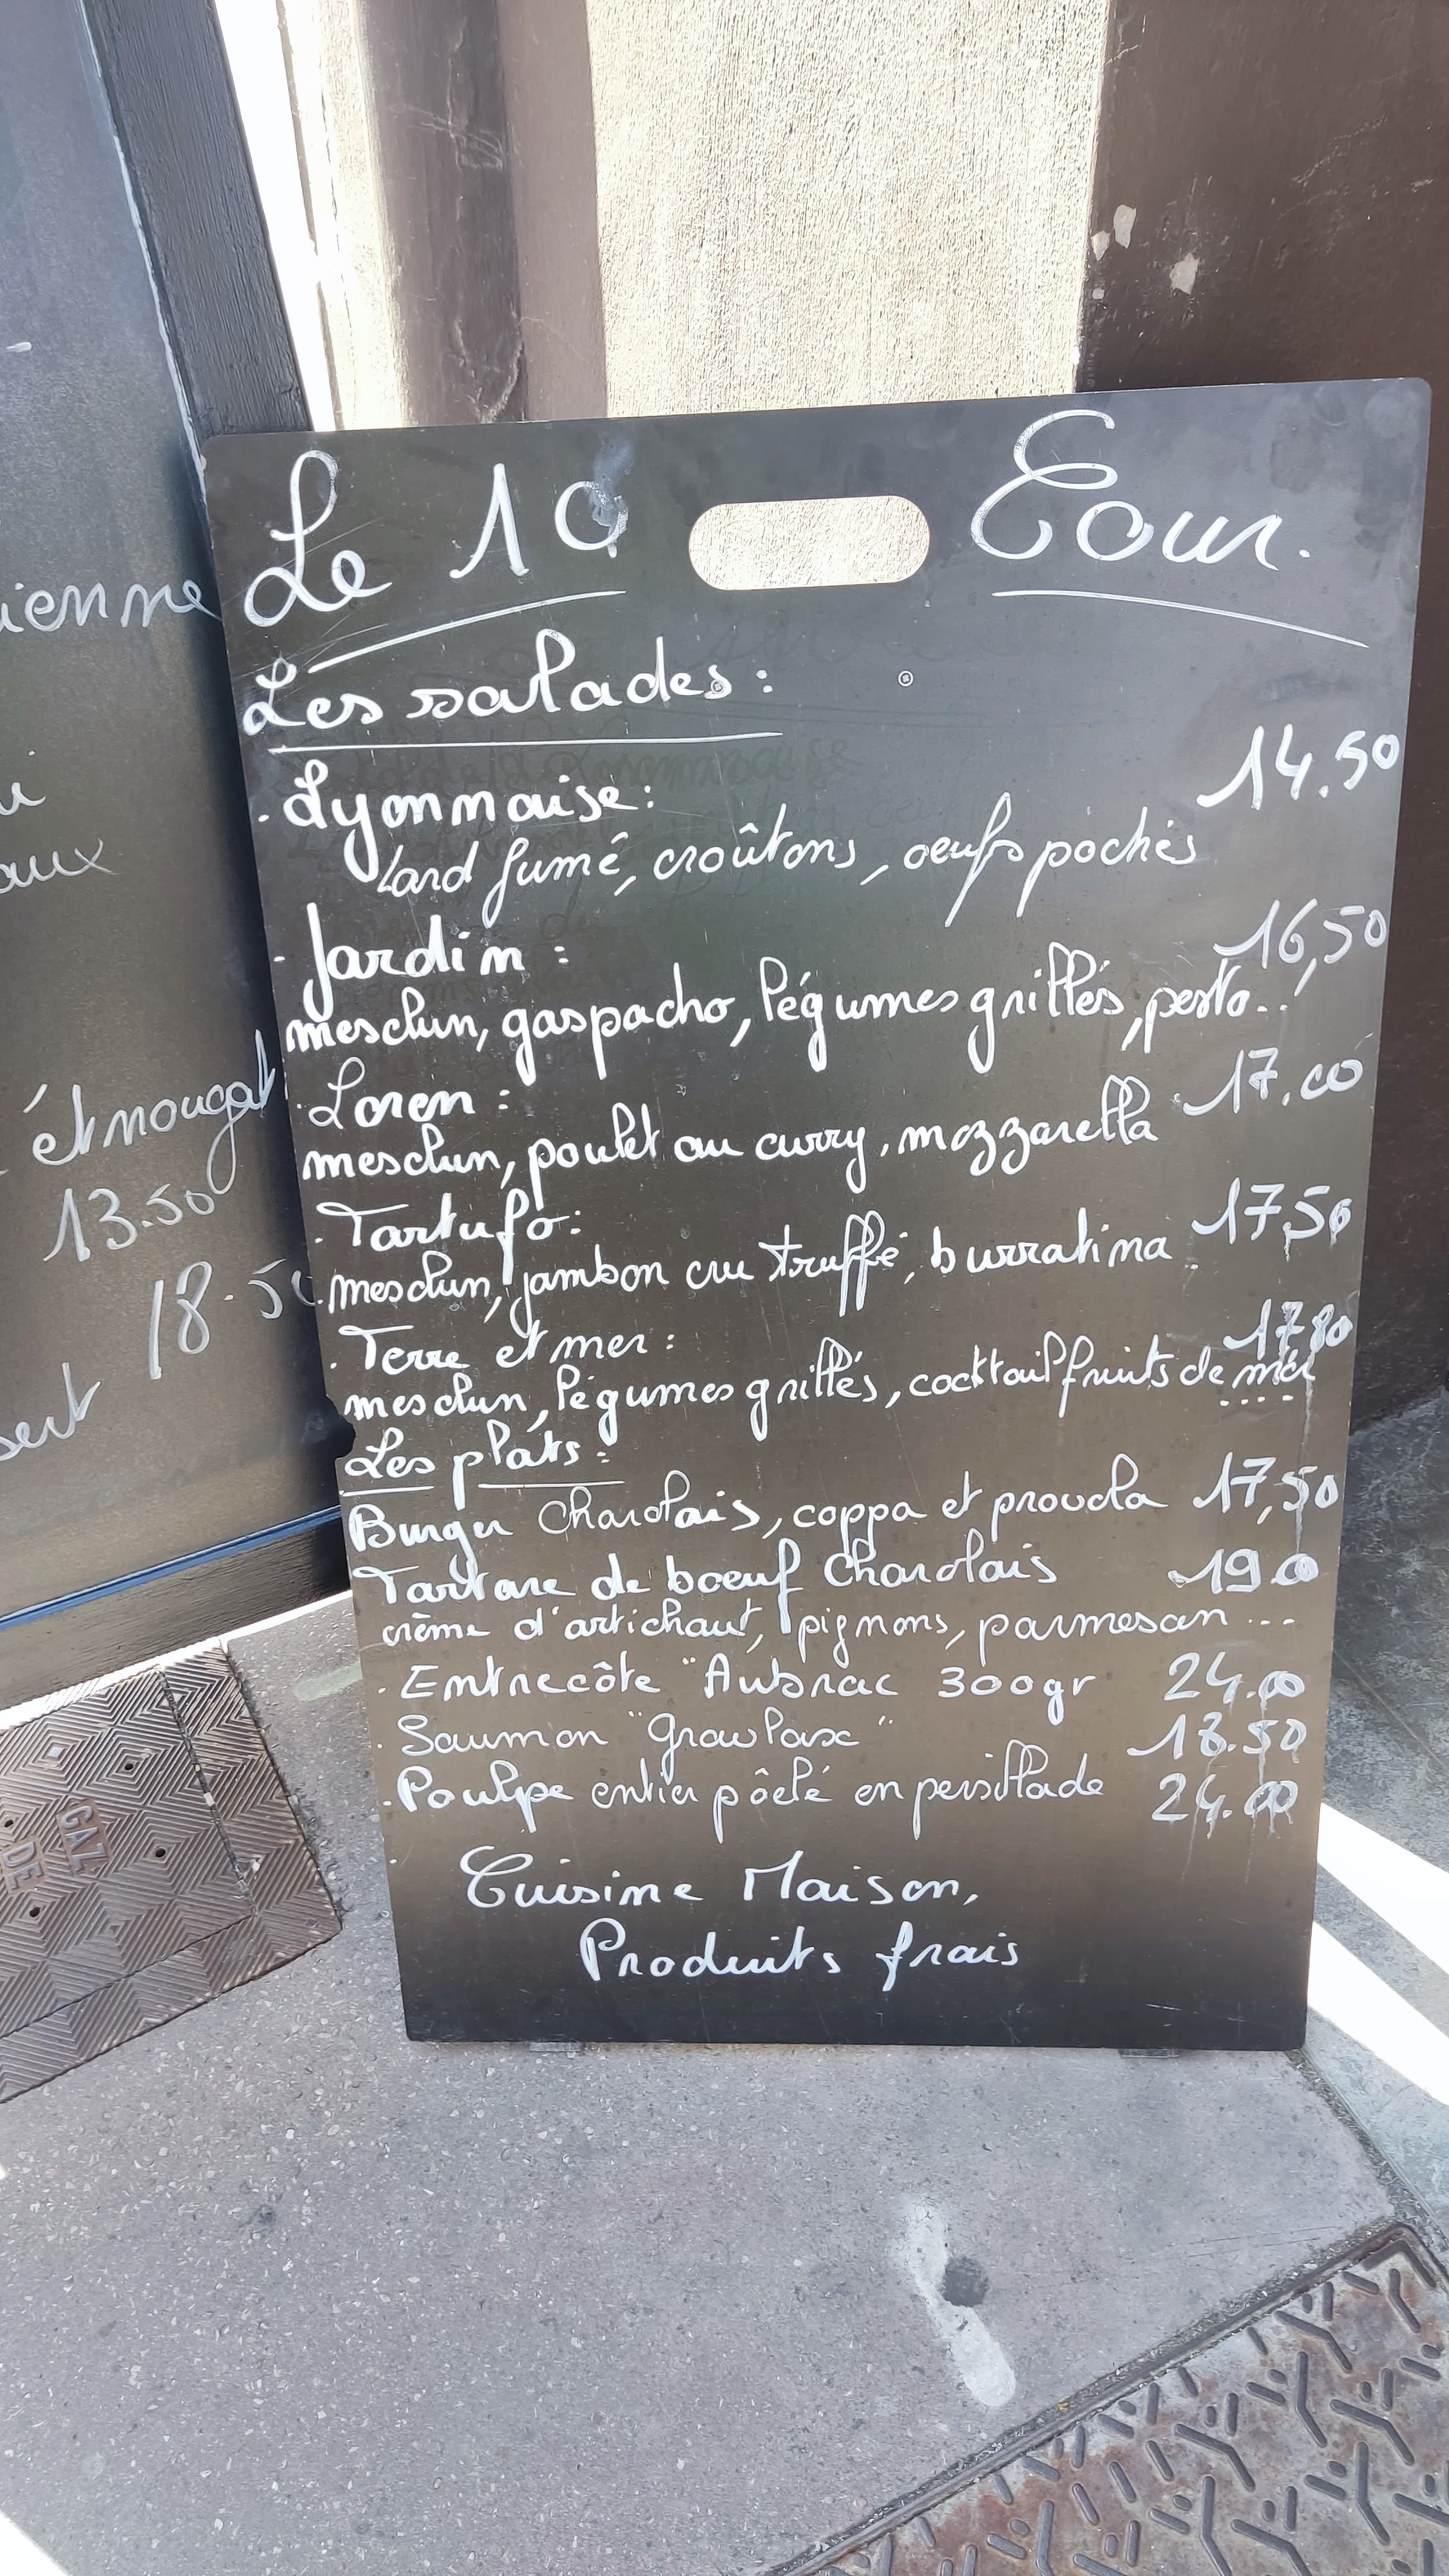 Le 10 Cour.
Les salades:
. Lyonnaise: 14.50
Lard fumé, croûtons, oeufs pochés
. Jardin: 16,50
mesclun, gaspacho, légumes grillés, pesto...
. Loren: 17.00
mesclun, poulet au curry, mozzarella
. Tartufo: 17,50
mesclun, jambon cru truffé, burratina..
. Terre et mer: 17,80
mesclun, légumes grillés, cocktail fruits de mer
....
Les plats:
Burger Charolais, coppa et provola 17,50
Tartare de boeuf Charolais 19.00
crème d'artichaut, pignons, parmesan ...
. Entrecôte "Aubrac 300gr 24.00
. Saumon "Gravlax" 18.50
. Poulpe entier pôelé en persillade 24.00
Cuisine Maison,
Produits frais
ienne
aux
et nougat
13.50
18.50
GAZ
DE